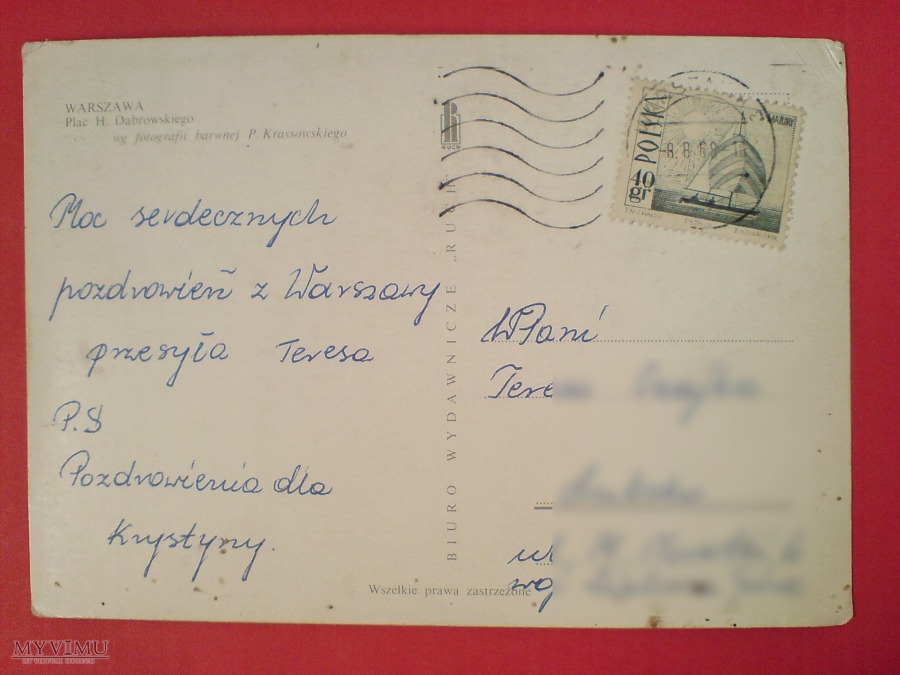 WARSZAWA
Plac H. Dąbrowskiego
wg fotografii barwnej P. Krassowskiego
Moc serdecznych
pozdrowień z Warszawy
przesyła Teresa
P.S
Pozdrowienia dla
Krystyny.
BIURO WYDAWNICZE „RUCH"
RUCH
Wszelkie prawa zastrzeżone
POLSKA
MAZURY
40
gr
8. 8. 68
WPani
Tere
ul
woj
MYVIMU